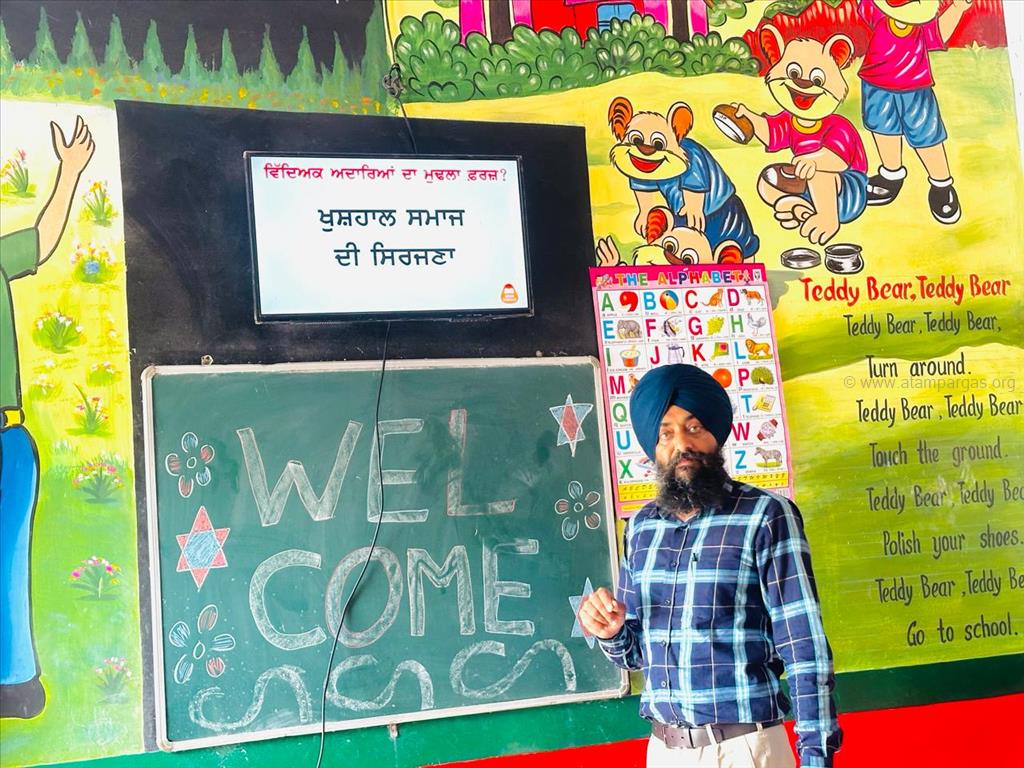 ਵਿੱਦਿਅਕ ਅਦਾਰਿਆਂ ਦਾ ਮੁਢਲਾ ਫ਼ਰਜ਼?
ਖੁਸ਼ਹਾਲ ਸਮਾਜ
ਦੀ ਸਿਰਜਣਾ
WEL
COME
THE ALPHABET
A B C D
E F G H
I J K L
M P
Q T
U W
X Z
Teddy Bear, Teddy Bear
Teddy Bear, Teddy Bear,
Turn around.
© www.atampargas.org
Teddy Bear, Teddy Bear
Touch the ground.
Teddy Bear, Teddy
Polish your shoes.
Teddy Bear, Teddy
Go to school.